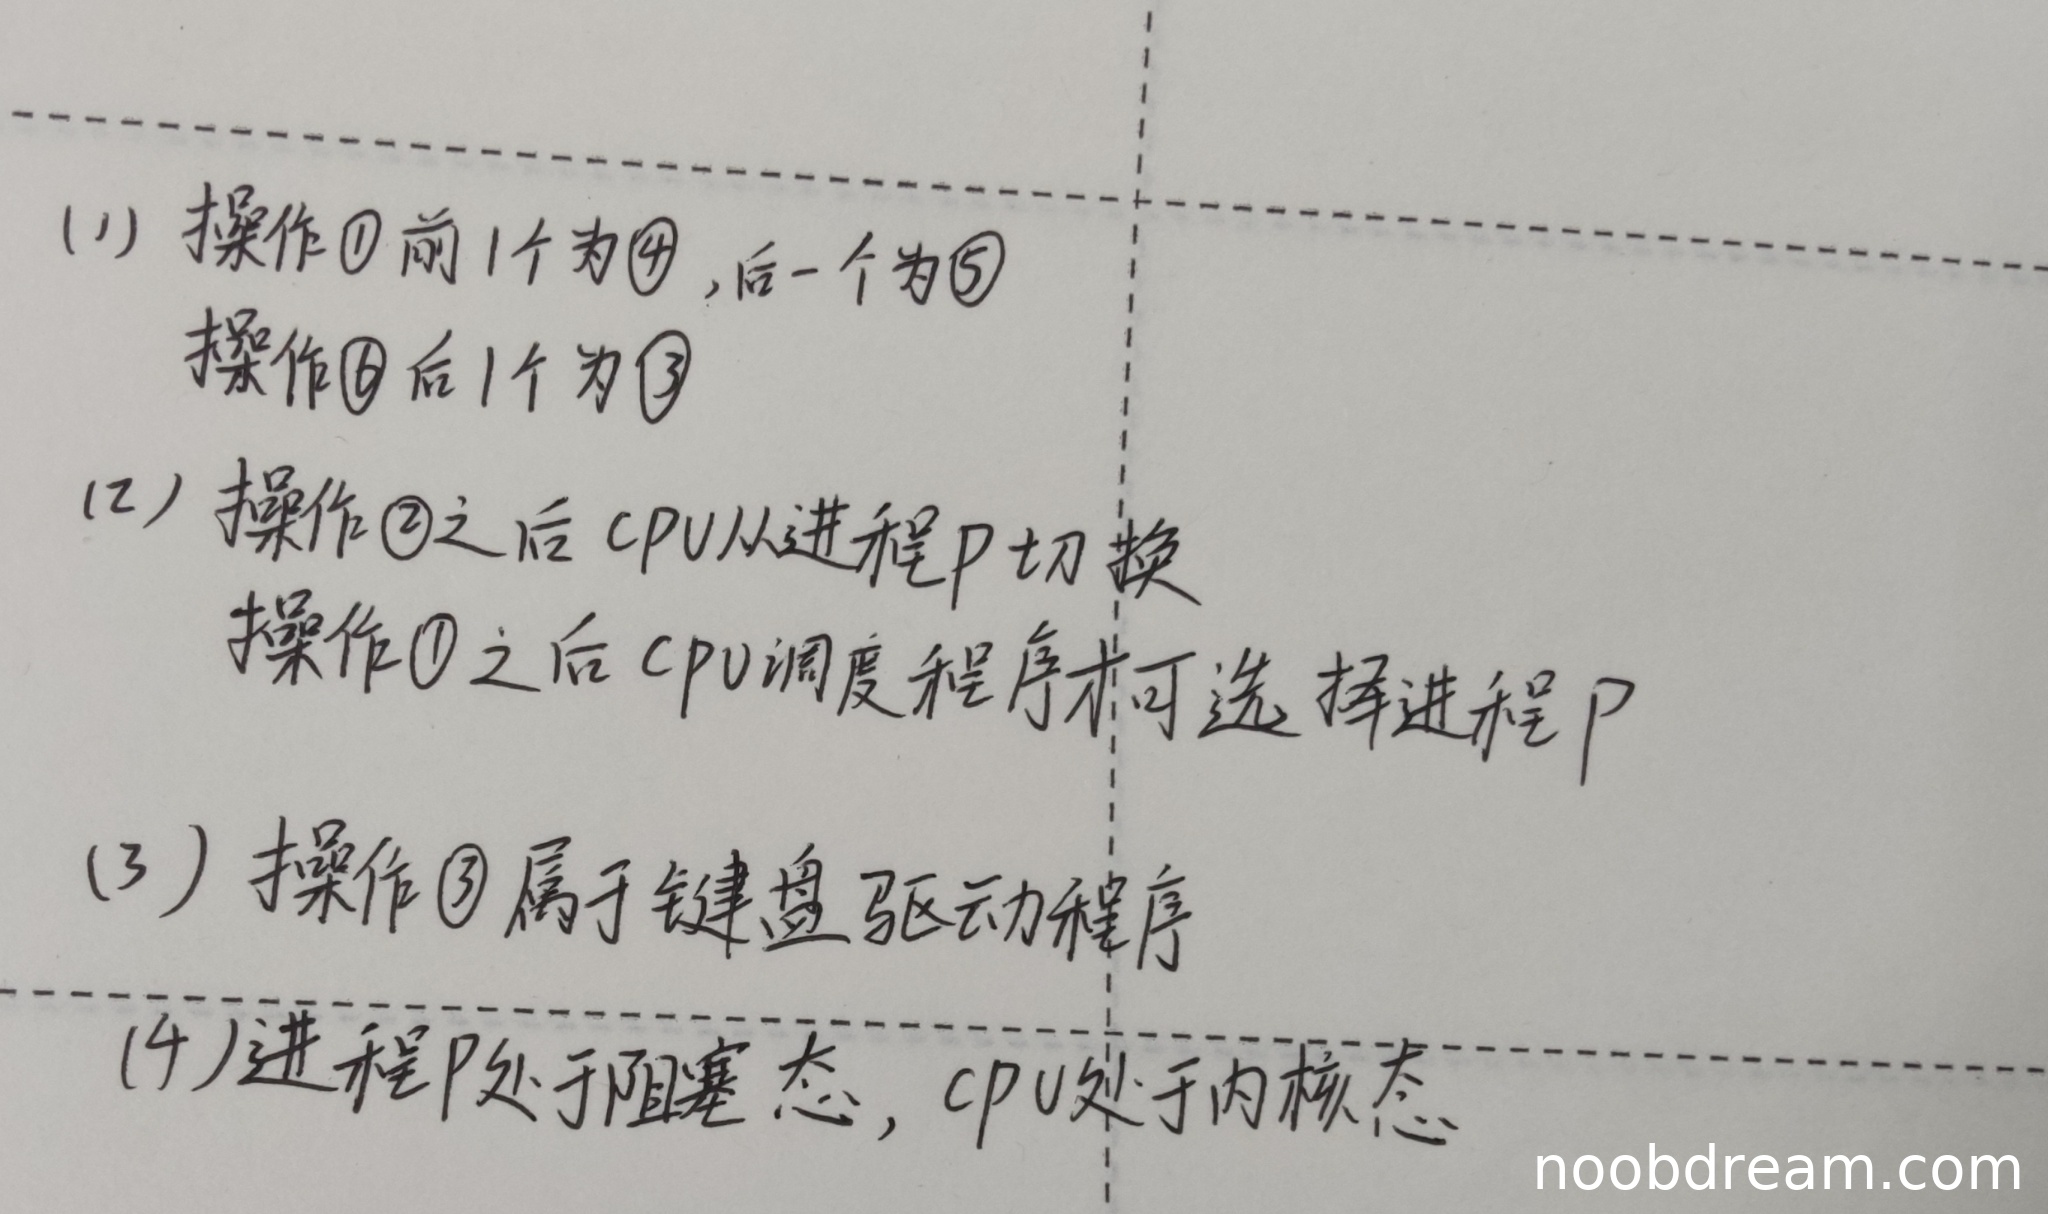 (1) 操作①前1个为④,后一个为⑤
操作⑥后1个为③
(2) 操作②之后CPU从进程P切换
操作①之后CPU调度程序才可选择进程P
(3) 操作③属于键盘驱动程序
(4) 进程P处于阻塞态,CPU处于内核态
noobdream.com